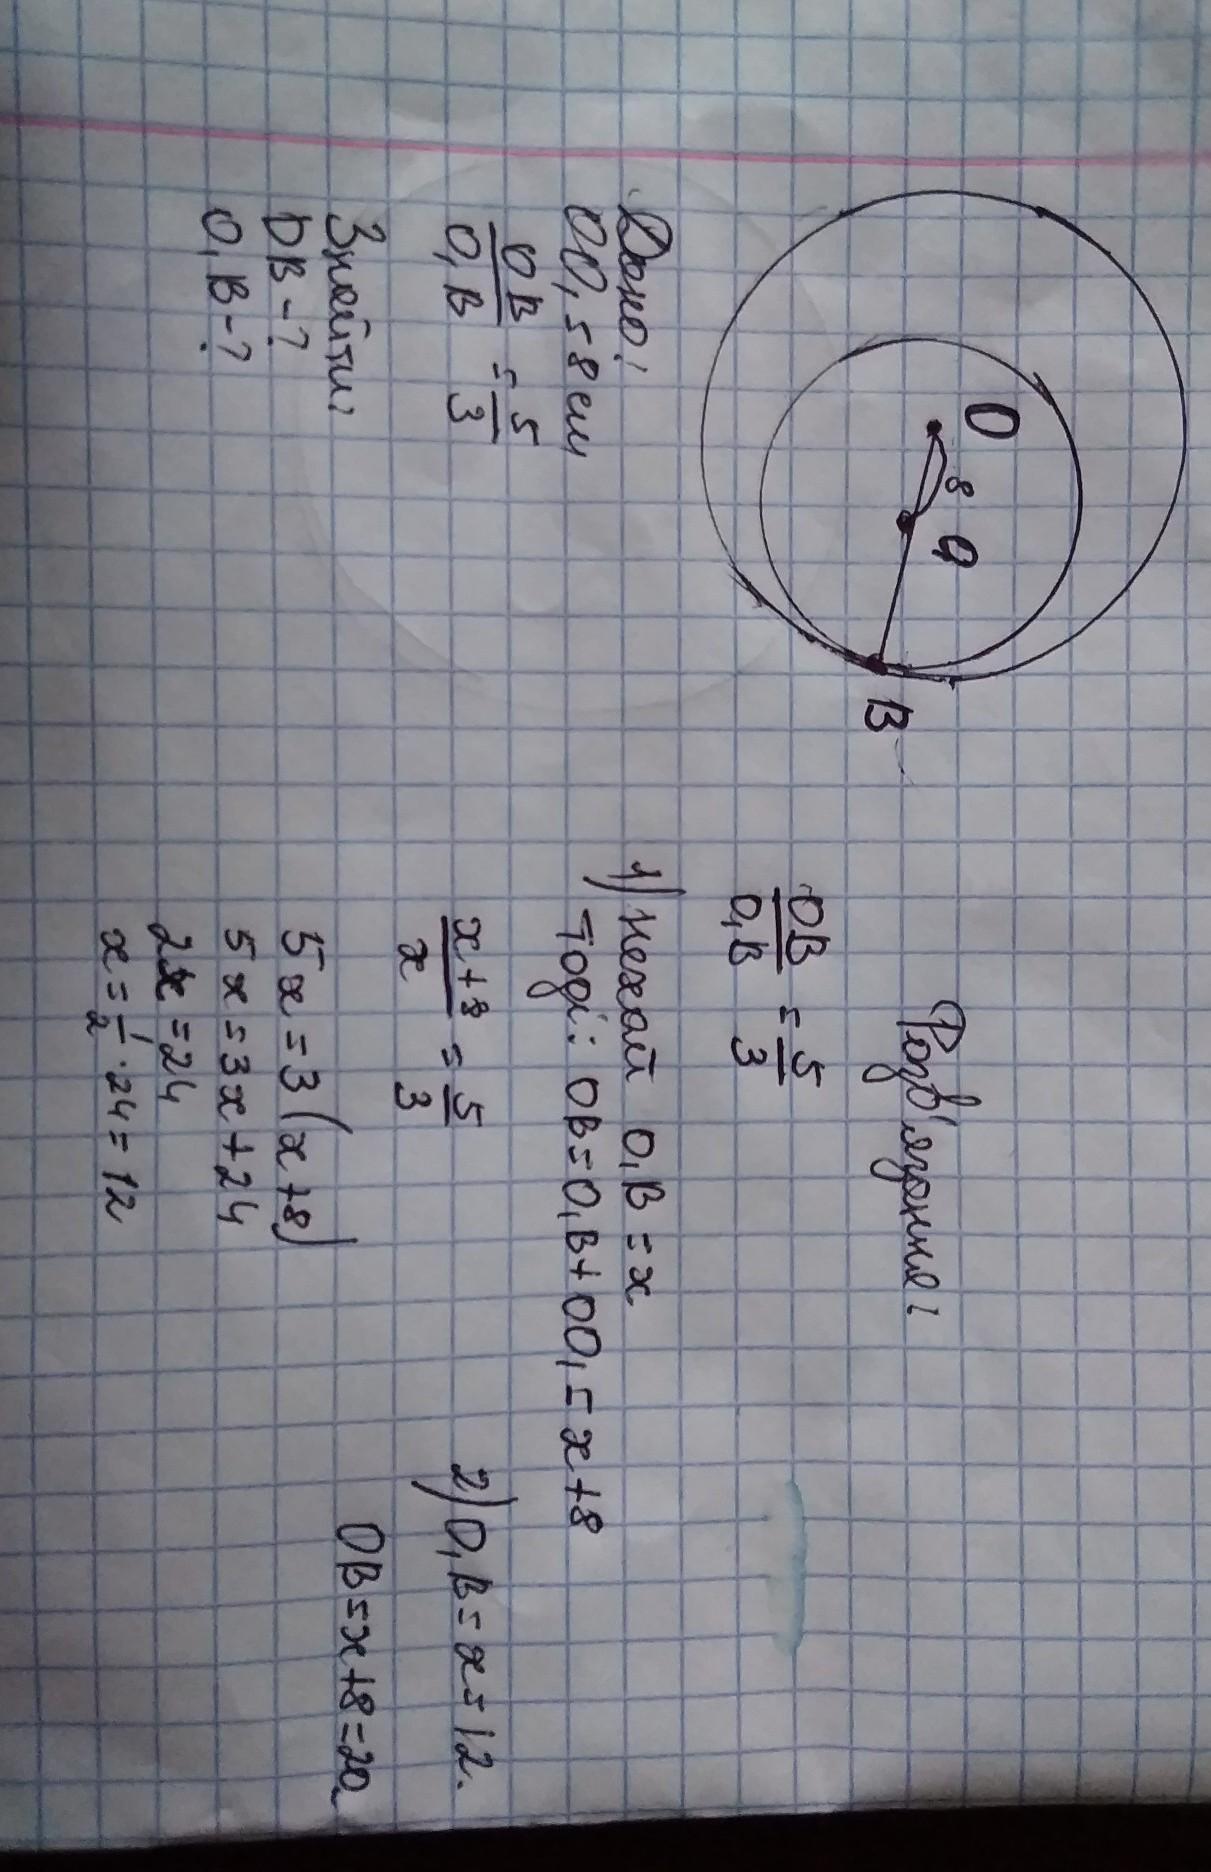 O
8
O₁
B
Дано:
OO₁ = 8 см
OB/O₁B = 5/3
Знайти:
OB - ?
O₁B - ?
Розв'язання:
OB/O₁B = 5/3
1) Нехай O₁B = x
Тоді: OB = O₁B + OO₁ = x + 8
(x+8)/x = 5/3
5x = 3(x+8)
5x = 3x + 24
2x = 24
x = 1/2 · 24 = 12
2) O₁B = x = 12.
OB = x + 8 = 20